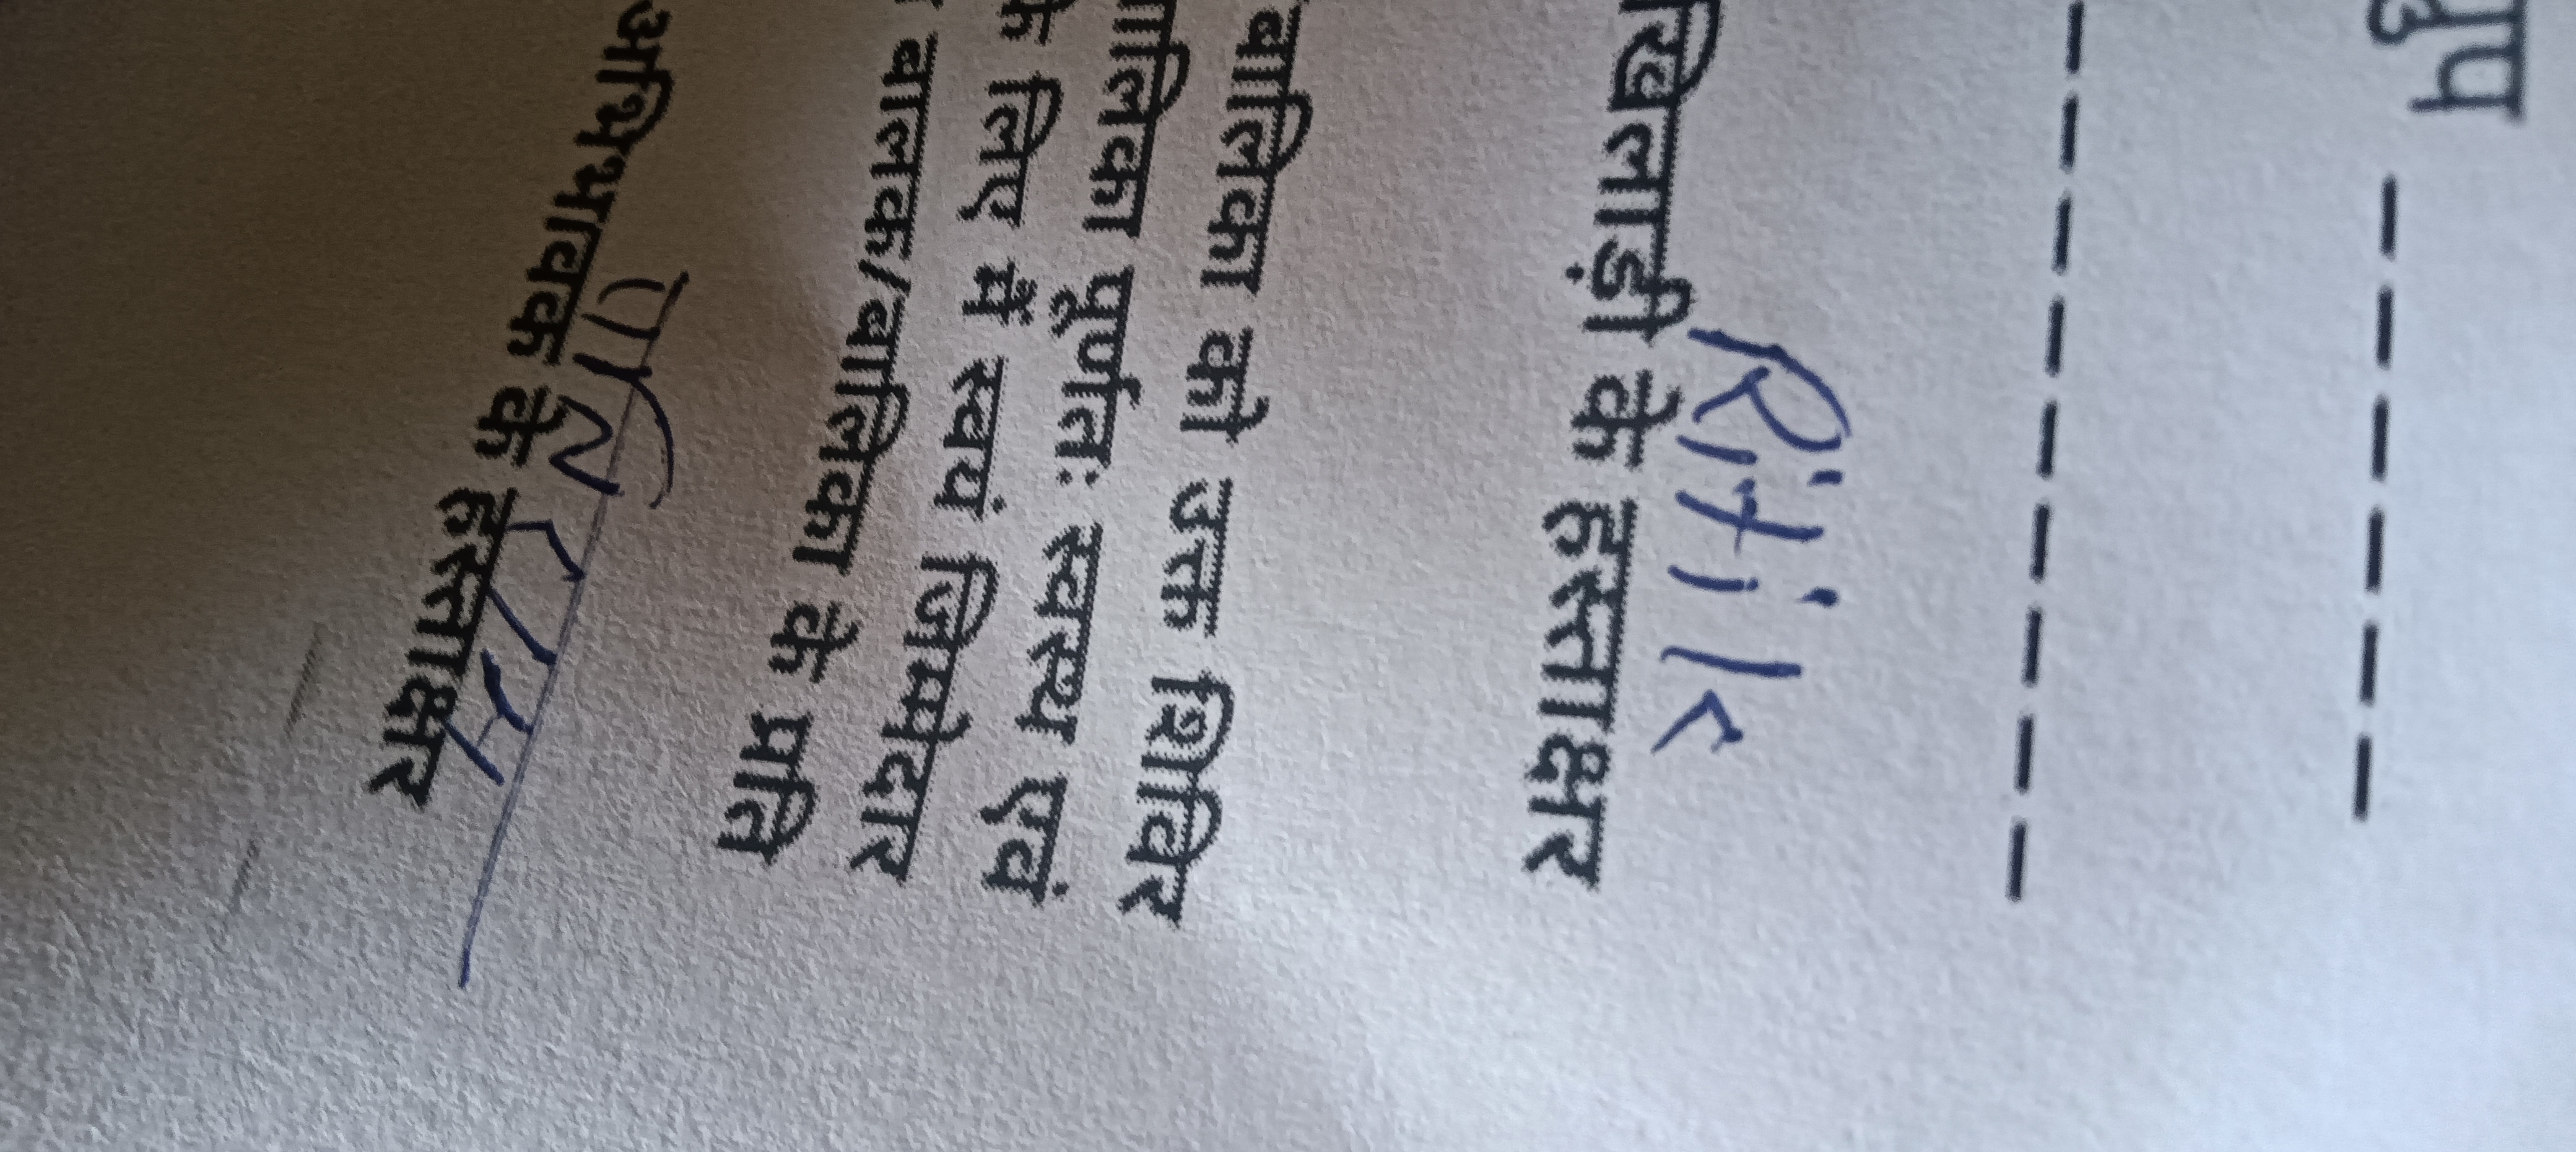 Ritik
खिलाड़ी के हस्ताक्षर
बालिका को उक्त शिविर
बालिका पूर्णतः स्वस्थ एवं
के लिए में स्वयं जिम्मेदार
बालक/बालिका के प्रति
अभिभावक के हस्ताक्षर